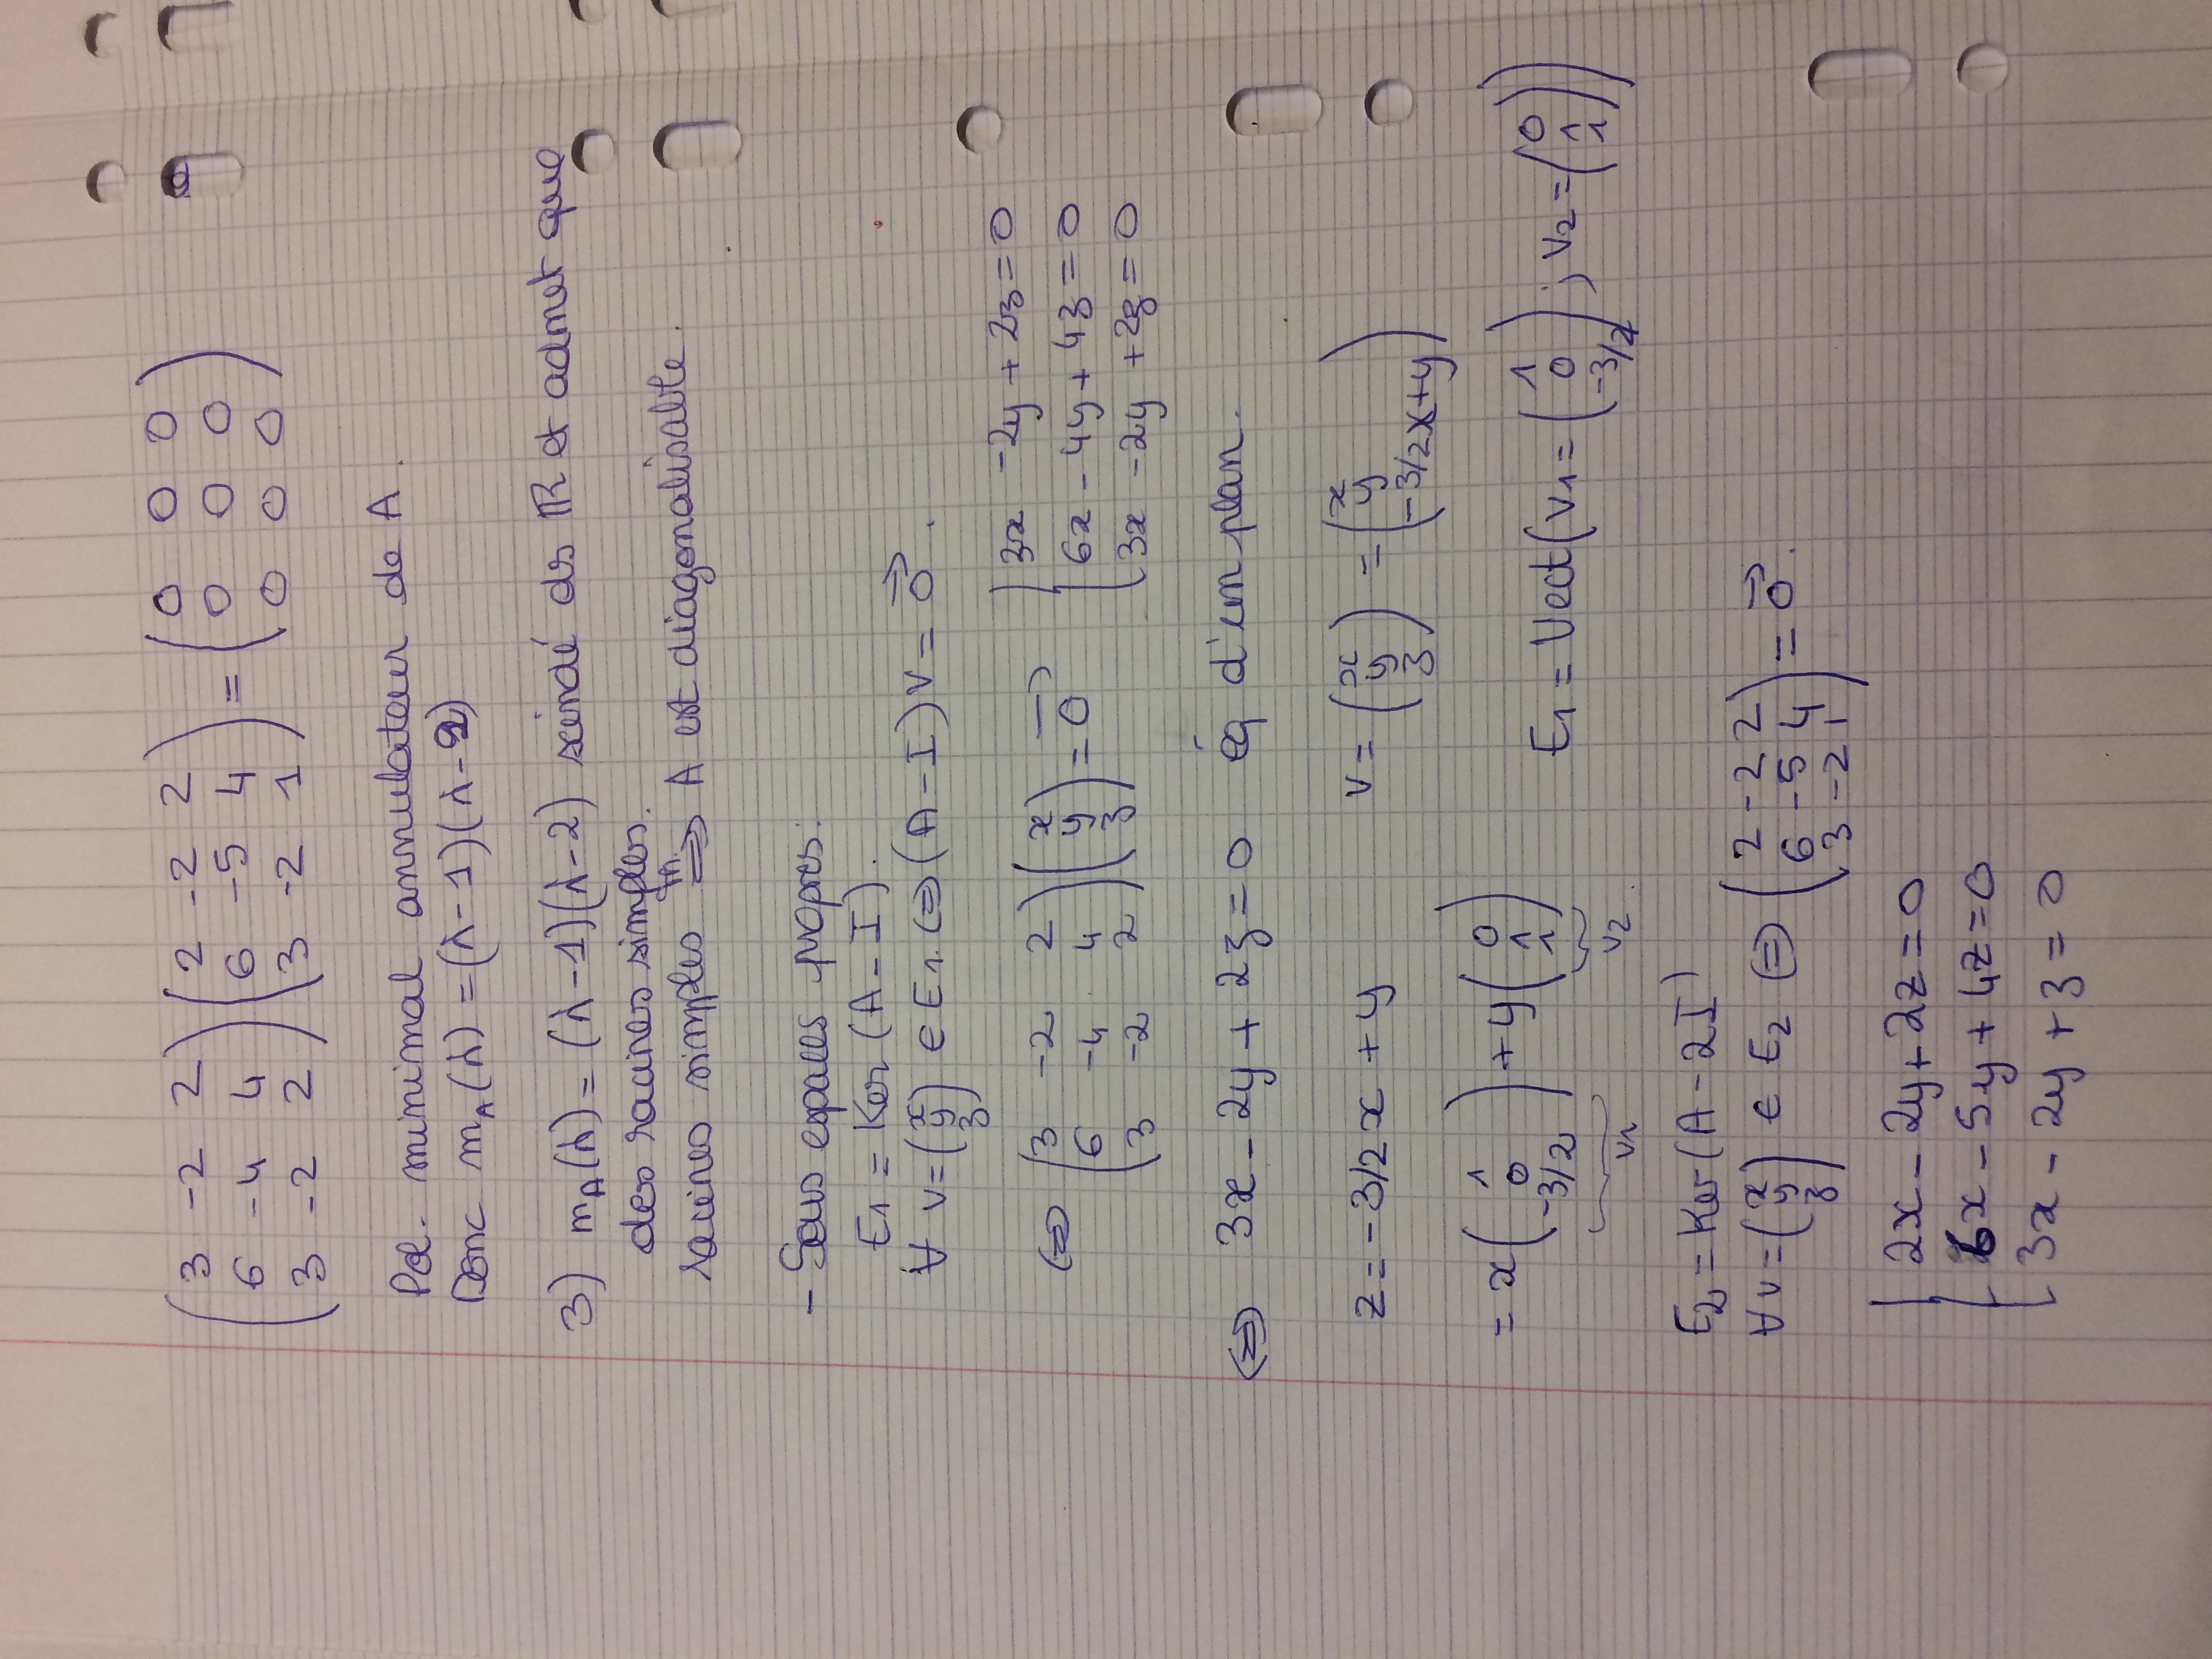 ( 3 -2 2 ) ( 2 -2 2 ) = ( 0 0 0 )
( 6 -4 4 ) ( 6 -5 4 ) ( 0 0 0 )
( 3 -2 2 ) ( 3 -2 1 ) ( 0 0 0 )
Pol. minimal annulateur de A.
Donc m_A(λ) = (λ-1)(λ-2)
3) m_A(λ) = (λ-1)(λ-2) scindé ds ℝ et admet que
des racines simples.
racines simples ⇒ (th.) A est diagonalisable.
- Sous espaces propres:
E1 = Ker (A - I).
∀ v = (x y z) ∈ E1. ⇔ (A - I) V = 0⃗.
⇔ ( 3 -2 2 ) ( x ) = 0⃗ { 3x -2y + 2z = 0
( 6 -4 4 ) ( y ) { 6x - 4y + 4z = 0
( 3 -2 2 ) ( z ) { 3x -2y +2z = 0
⇔ 3x - 2y + 2z = 0 éq d'un plan.
z = -3/2 x + y v = (x y z) = (x y -3/2x+y)
= x (1 0 -3/2) + y (0 1 1)
v1 v2
E1 = Vect(v1 = (1 0 -3/2) ; v2 = (0 1 1))
E2 = Ker (A - 2I)
∀ v = (x y z) ∈ E2 ⇔ ( 2 -2 2 ) = 0⃗.
( 6 -5 4 )
( 3 -2 1 )
{ 2x - 2y + 2z = 0
{ 6x - 5y + 4z = 0
{ 3x - 2y + z = 0